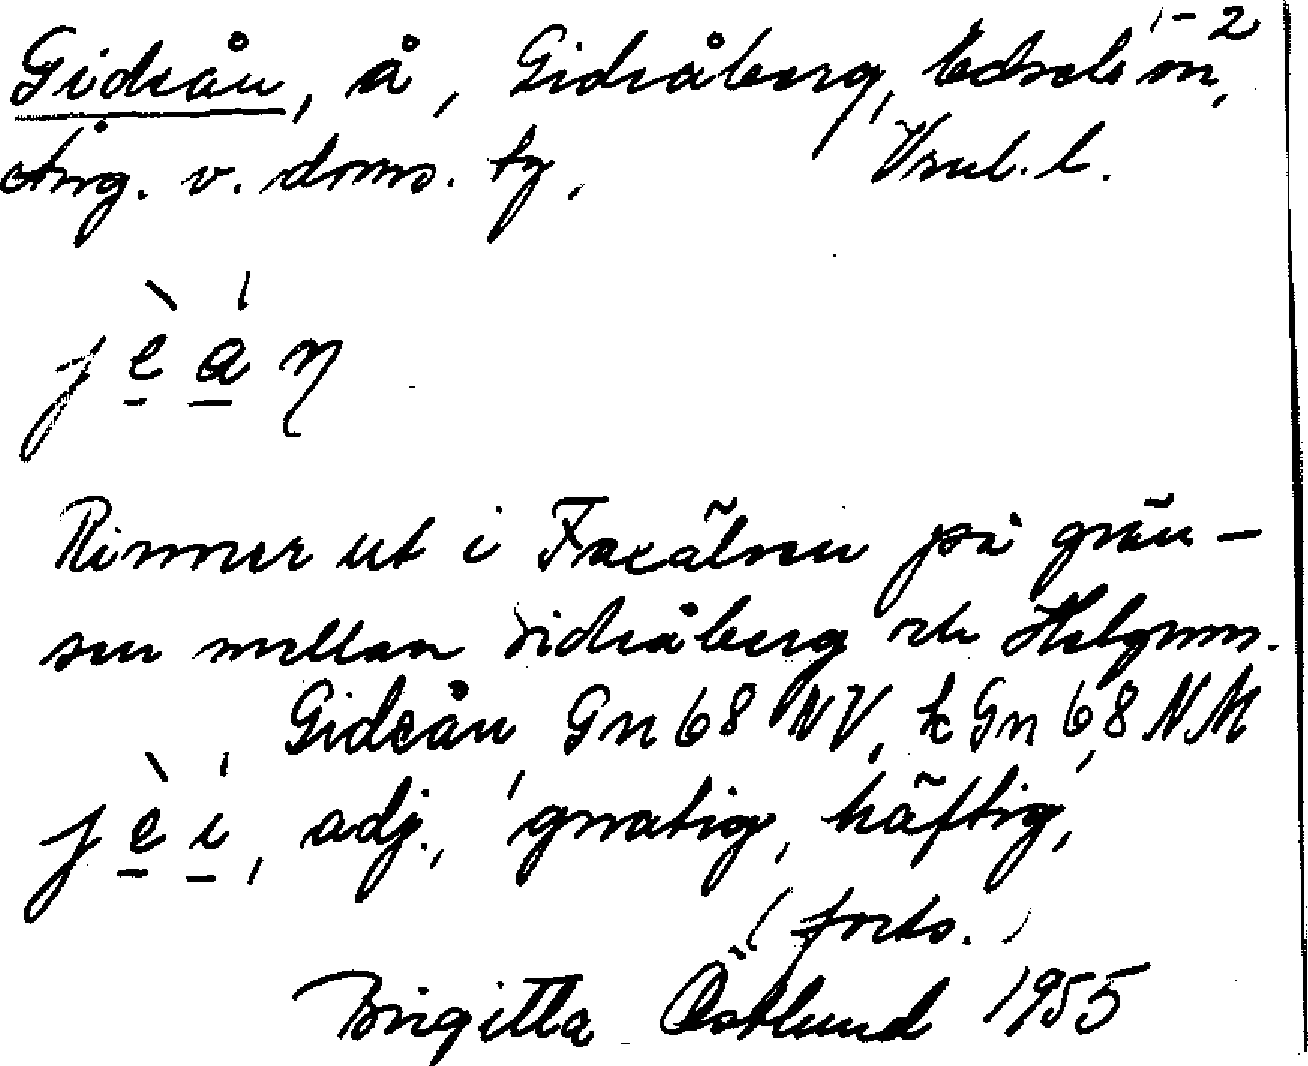 1-2
Gideån, å, Gideåberg, Edsele sn,
Ång. v. doms. tg. Vsml. l.
j è a n
Rinner ut i Faxälven på grän-
sen mellan Gideåberg och Helgum.
Gideån Gn 68 NV, k Gn 6,8 NM
j è i, adj., 'gnatig, häftig,'
(forts.)
Birgitta Östlund 1955